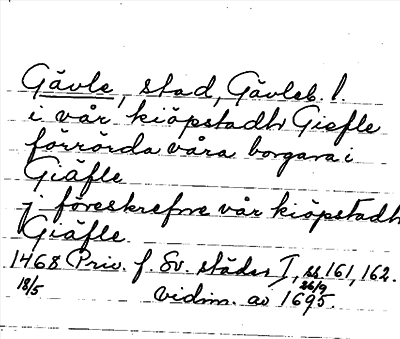 Gävle, stad, Gävleb. l.
i vår kiöpstadh Giefle
förrörda våra borgara i
Giäfle
j föreskrefne vår kiöpstadh
Giäfle.
1468 Priv. f. Sv. städer I, ss 161, 162.
18/5 vidim. av 26/9 1695.